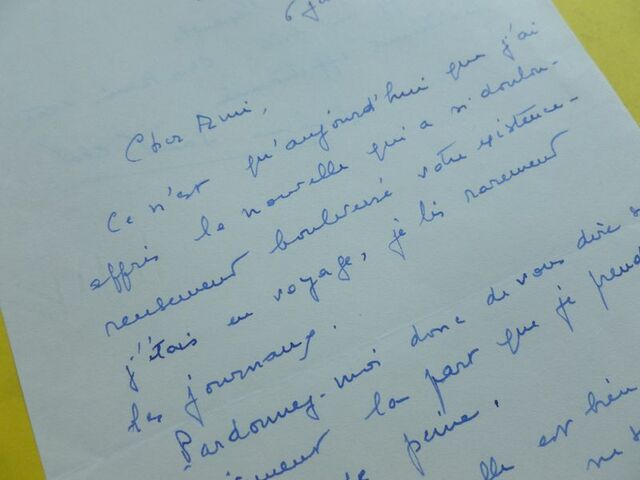 Cher Ami,
Ce n'est qu'aujourd'hui que j'ai
appris la nouvelle qui a si doulou-
reusement bouleversé votre existence-
j'étais en voyage, je lis rarement
les journaux.
Pardonnez-moi donc de vous dire
la part que je prends
peine.
elle est bien
ne